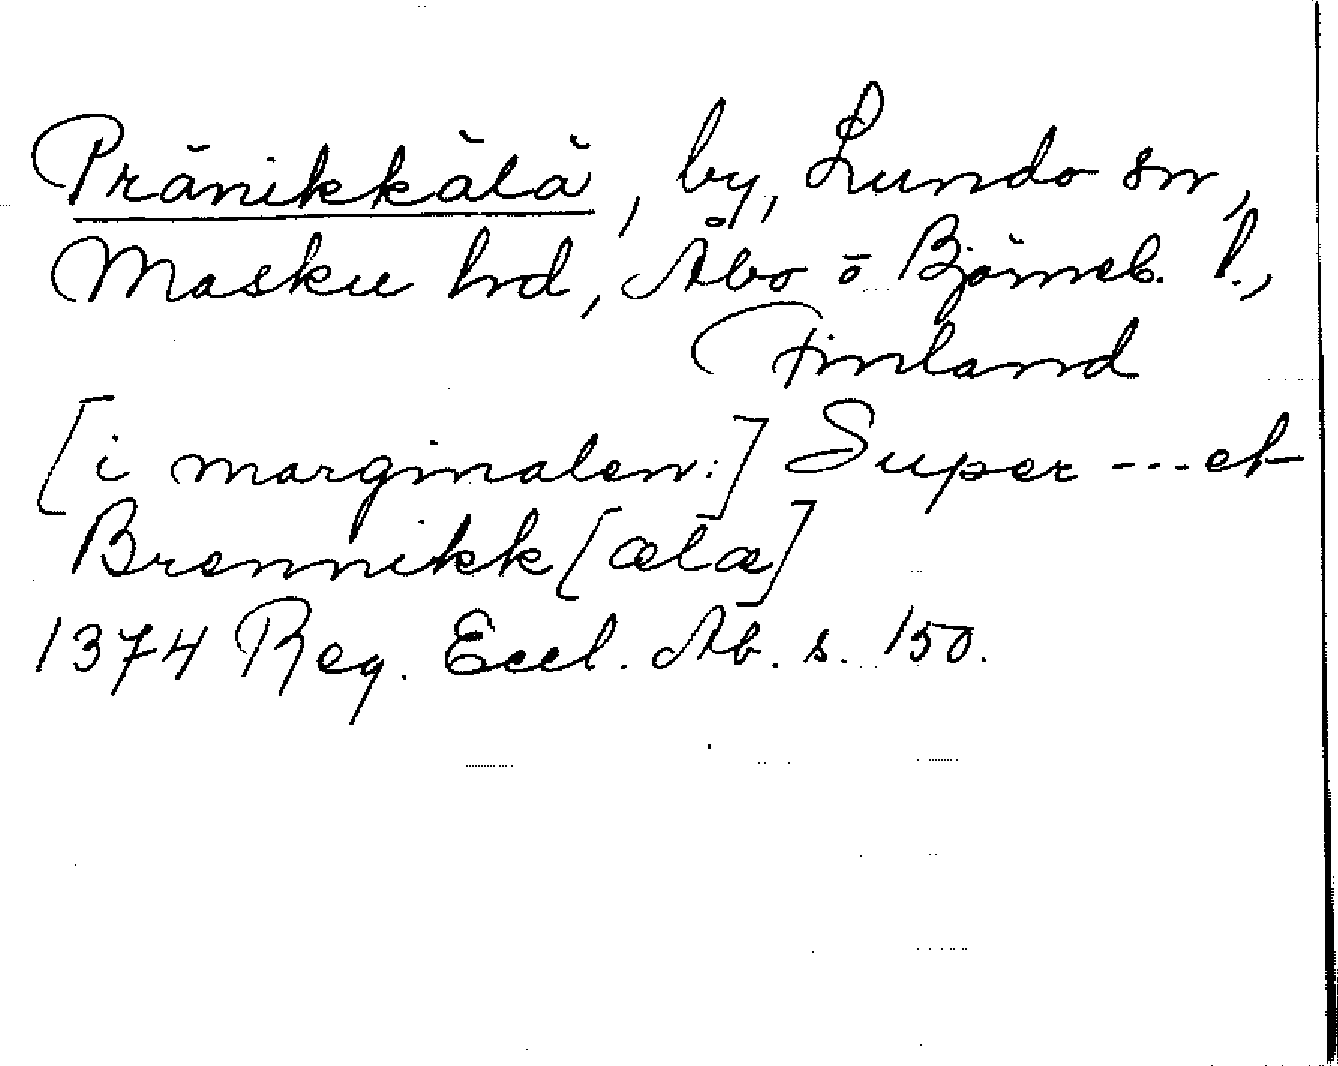 Pränikkälä, by, Lundo sn,
Masku hd, Åbo o Björneb. l.,
Finland
[i marginalen:] Super --- et
Brennikk[ælæ]
1374 Reg. Eccl. Ab. s. 150.